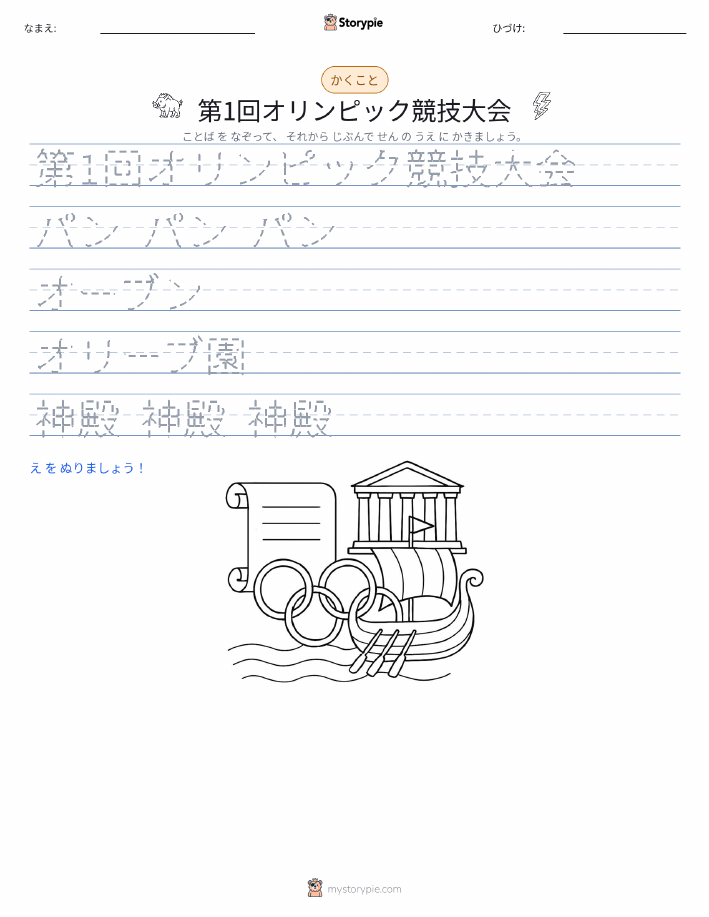 なまえ:
Storypie
ひづけ:
かくこと
第1回オリンピック競技大会
ことば を なぞって、 それから じぶんで せん の うえ に かきましょう。
第1回オリンピック競技大会
パン パン パン
オーブン
オリーブ園
神殿 神殿 神殿
え を ぬりましょう！
mystorypie.com